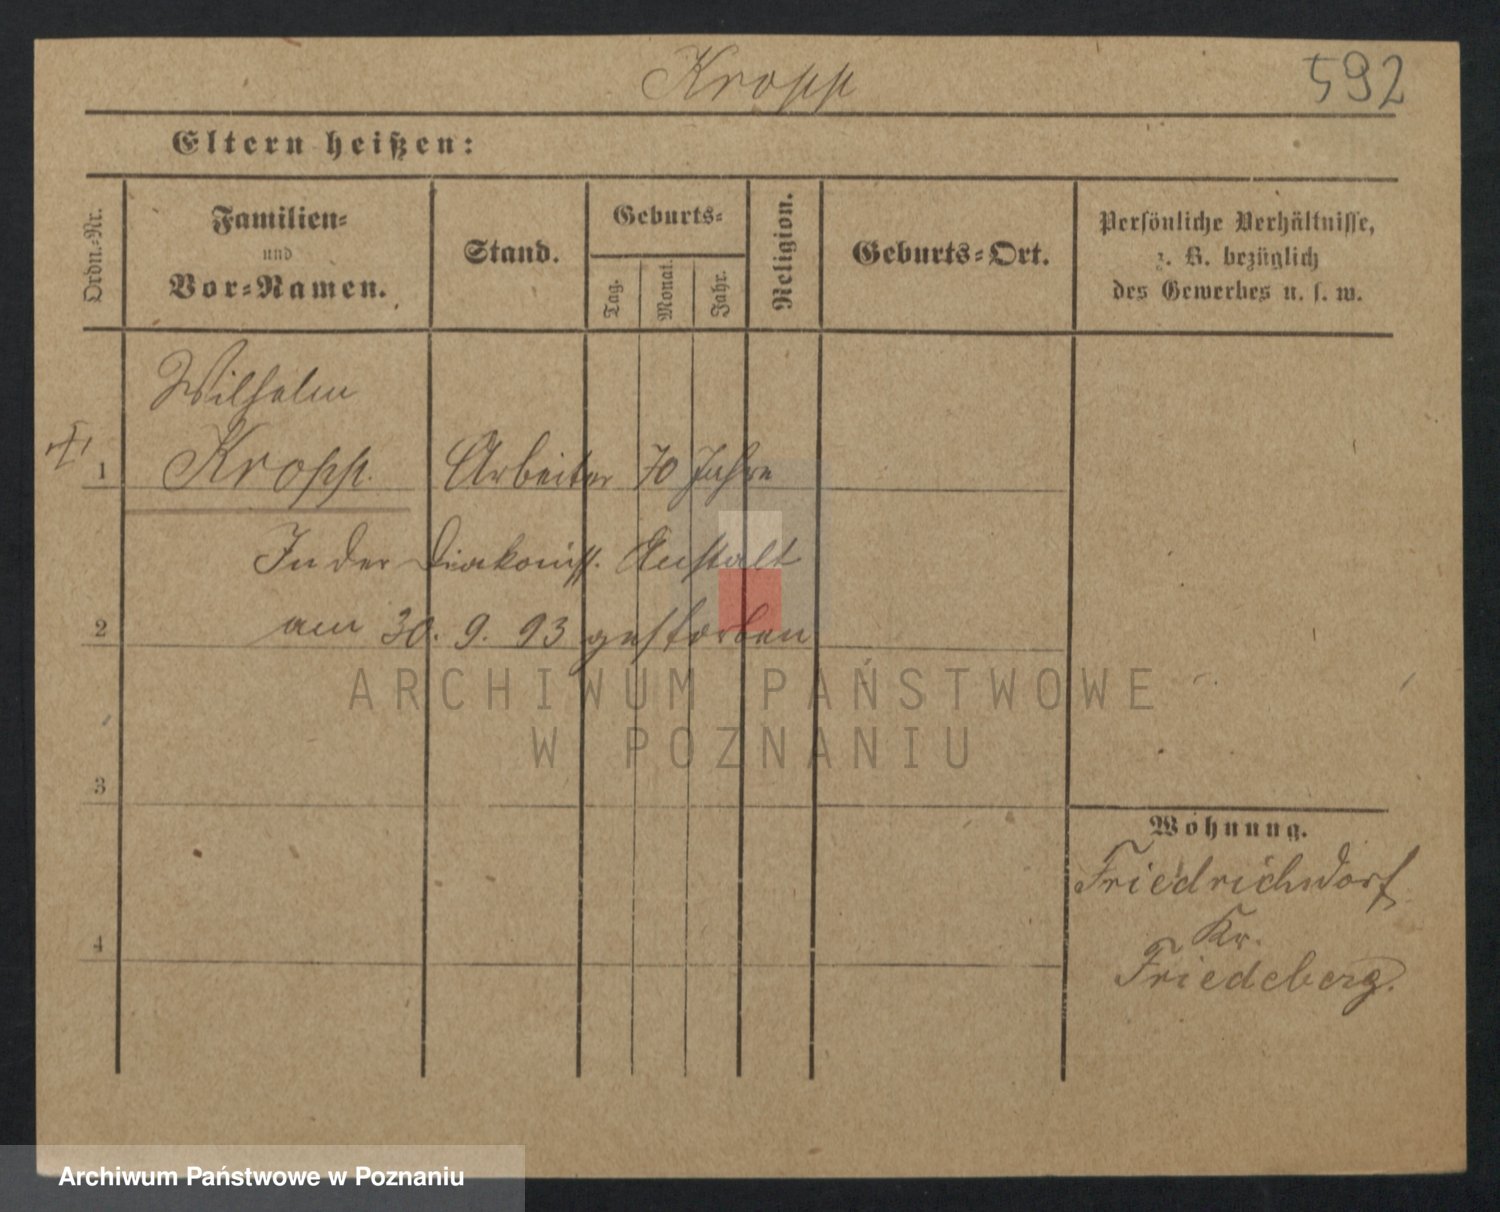 Kropp
592
Eltern heißen:
Ordn.-Nr.
Familien-
und
Vor-Namen.
Stand.
Geburts-
Tag.
Monat.
Jahr.
Religion.
Geburts-Ort.
Persönliche Verhältnisse,
z. B. bezüglich
des Gewerbes u. s. w.
Wilhelm
1 Kropp. Arbeiter 70 Jahre
In der Diakoniss. Anstalt
2 am 30. 9. 93 gestorben
ARCHIWUM PAŃSTWOWE
W POZNANIU
3
Wohnung.
Friedrichsdorf
Kr.
4
Friedeberg.
Archiwum Państwowe w Poznaniu